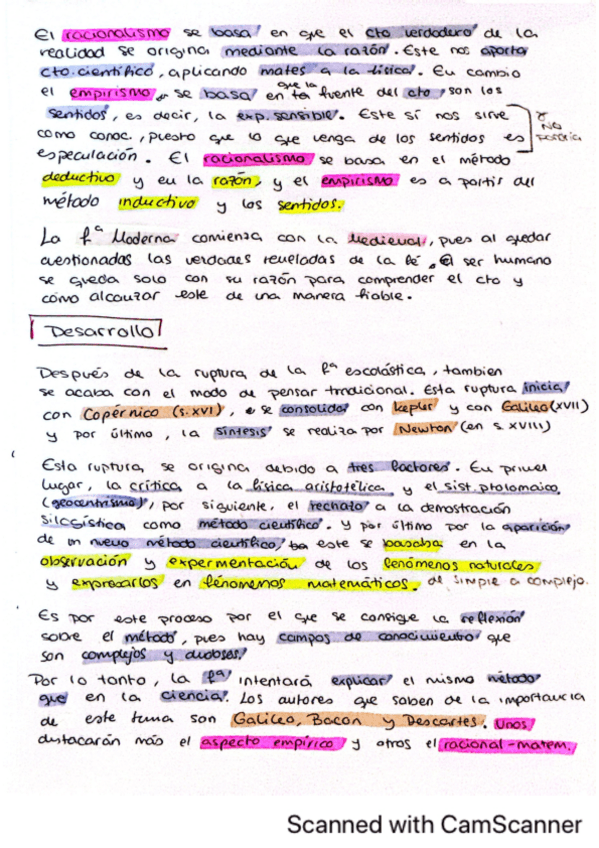 El racionalismo se basa en que el cto verdadero de la
realidad se origina mediante la razón. Este nos aporta
cto. científico, aplicando mates a la física. En cambio
el empirismo se basa en que la fuente del cto son los
sentidos, es decir, la exp. sensible. Este sí nos sirve
como conoc., puesto que lo que venga de los sentidos es
NO
especulación. El racionalismo se basa en el método
deductivo y en la razón, y el empirismo es a partir del
método inductivo y los sentidos.
La fª Moderna comienza con la Medieval, pues al quedar
cuestionadas las verdades reveladas de la fé. El ser humano
se queda solo con su razón para comprender el cto y
cómo alcanzar este de una manera fiable.
Desarrollo
Después de la ruptura de la fª escolástica, tambien
se acaba con el modo de pensar tradicional. Esta ruptura inicia
con Copérnico (s. XVI), se consolida con Kepler y con Galileo (XVII)
y por último, la síntesis se realiza por Newton (en s. XVIII)
Esta ruptura se origina debido a tres factores. En primer
lugar, la crítica a la física aristotélica y el sist. ptolomaico
(geocentrismo), por siguiente, el rechazo a la demostración
silogística como método científico. Y por último por la aparición
de un nuevo método científico, este se basaba en la
observación y expermentación de los fenómenos naturales
y expresarlos en fénomenos matemáticos. de simple a complejo.
Es por este proceso por el que se consigue la reflexión
sobre el método, pues hay campos de conocimiento que
son complejos y dudosos.
Por lo tanto, la fª intentará explicar el mismo método
que en la ciencia. Los autores que saben de la importancia
de este tema son Galileo, Bacon y Descartes. Unos
destacarán más el aspecto empírico y otros el racional-matem.
Scanned with CamScanner